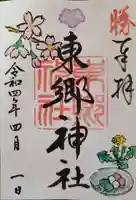 勝
奉拝
東郷神社
令和四年四月一日